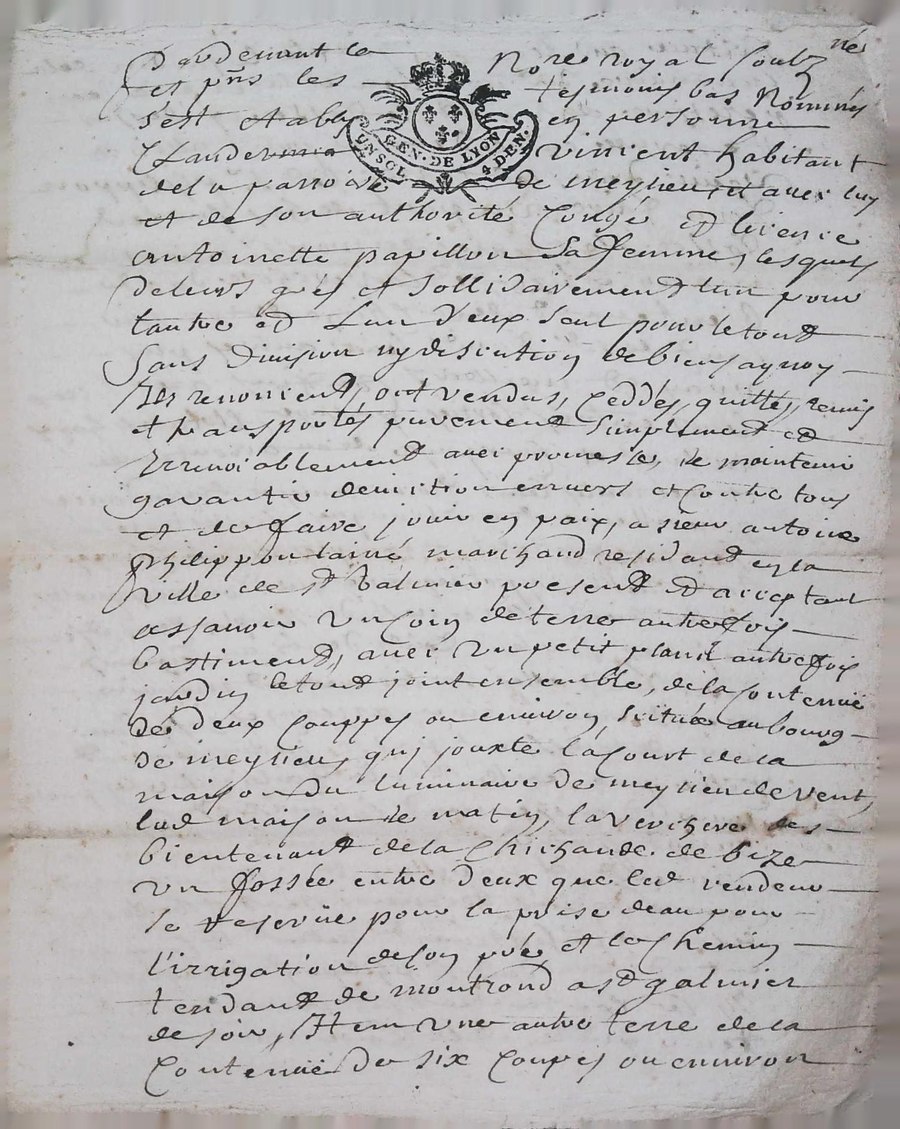 Pardevant le Nore royal soubz né
et pñs les tesmoins bas nommés
s'est establi en personne
GEN. DE LYON
UN SOL 4 DEN.
Claude vincent habitant
de la parroisse de meylieu, et avec luy
et de son authorité Congé et licence
antoinette papillon sa femme, lesquels
de leurs gés et sollidairement l'un pour
l'autre et l'un d'eux seul pour le tout
sans division ny discution de biens a quoy
Ils renoncent, ont vendus, ceddés, quittés, remis
et transportés purement simplement et
Irrevocablement avec promesse, de maintenir
garantir deviction envers et contre tous
et de faire jouir en paix, a sieur antoine
Philippon lainé marchand residant en la
ville de st Galmier present et acceptant
assavoir un coin de terre autrefois
bastiment, avec un petit autreffois
jardin le tout joint ensemble, de la contenuë
de deux Couppes ou environ, scituée au bourg
de meylieu, qui jouxte la Court de la
maison du luminaire de meylieu de vent,
lad maison de matin, la verchere des
bientenant de la Chichaude de bize
un fossée entre deux que led vendeur
se reserüe pour la prise deau pour
l'irrigation de son pré, et le Chemin
tendant de montrond a st galmier
de soir, Item une autre terre de la
Contenuë de six Coupes ou environ